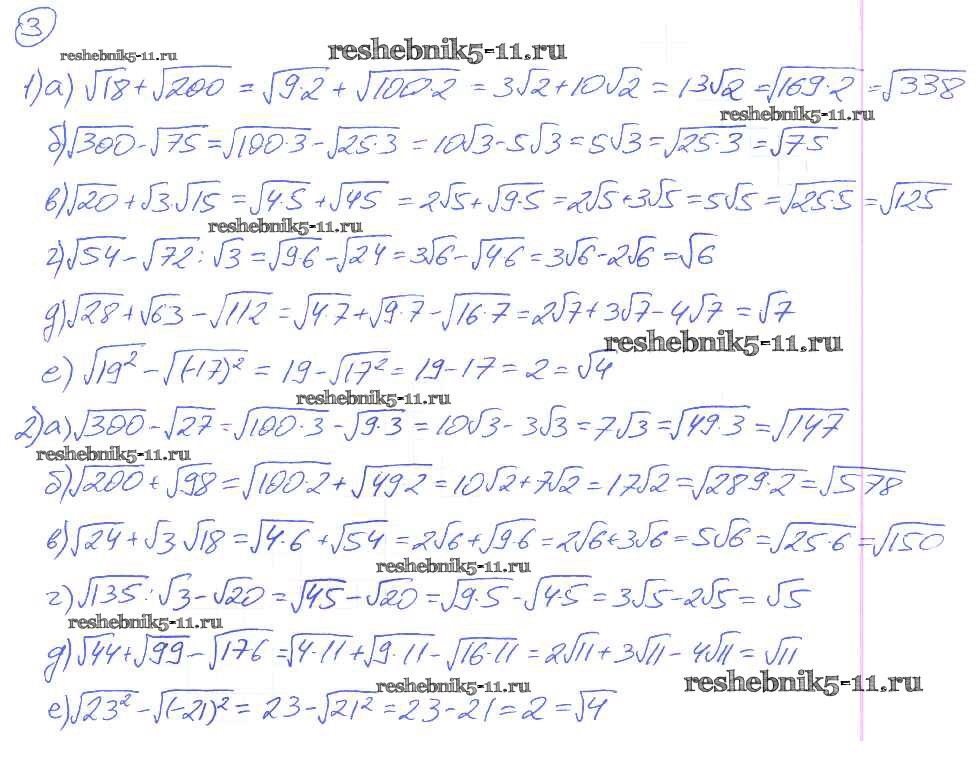 3
reshebnik5-11.ru reshebnik5-11.ru
1) а) √18 + √200 = √9·2 + √100·2 = 3√2 + 10√2 = 13√2 = √169·2 = √338
reshebnik5-11.ru
б) √300 - √75 = √100·3 - √25·3 = 10√3 - 5√3 = 5√3 = √25·3 = √75
в) √20 + √3·√15 = √4·5 + √45 = 2√5 + √9·5 = 2√5 + 3√5 = 5√5 = √25·5 = √125
reshebnik5-11.ru
г) √54 - √72 : √3 = √9·6 - √24 = 3√6 - √4·6 = 3√6 - 2√6 = √6
д) √28 + √63 - √112 = √4·7 + √9·7 - √16·7 = 2√7 + 3√7 - 4√7 = √7
reshebnik5-11.ru
е) √19² - √(-17)² = 19 - √17² = 19 - 17 = 2 = √4
reshebnik5-11.ru
2) а) √300 - √27 = √100·3 - √9·3 = 10√3 - 3√3 = 7√3 = √49·3 = √147
reshebnik5-11.ru
б) √200 + √98 = √100·2 + √49·2 = 10√2 + 7√2 = 17√2 = √289·2 = √578
в) √24 + √3·√18 = √4·6 + √54 = 2√6 + √9·6 = 2√6 + 3√6 = 5√6 = √25·6 = √150
reshebnik5-11.ru
г) √135 : √3 - √20 = √45 - √20 = √9·5 - √4·5 = 3√5 - 2√5 = √5
reshebnik5-11.ru
д) √44 + √99 - √176 = √4·11 + √9·11 - √16·11 = 2√11 + 3√11 - 4√11 = √11
reshebnik5-11.ru reshebnik5-11.ru
е) √23² - √(-21)² = 23 - √21² = 23 - 21 = 2 = √4